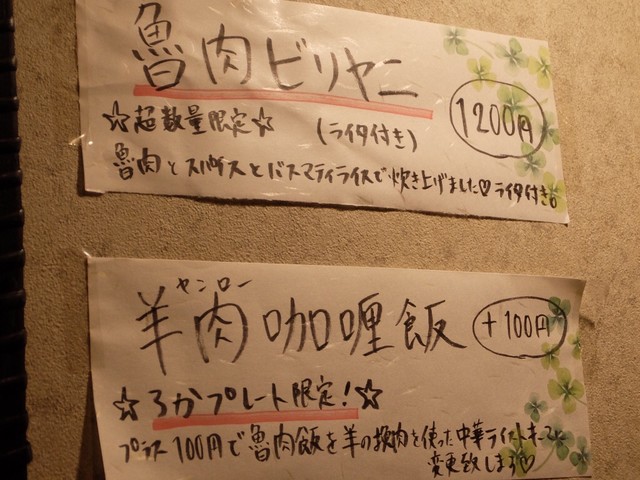 魯肉ビリヤニ
1200円
☆超数量限定☆ (ライタ付き)
魯肉とスパイスとバスマティライスで炊き上げました♡ライタ付き。
ヤンロー
羊肉咖喱飯
+100円
☆3かプレート限定!☆
プラス100円で魯肉飯を羊の挽肉を使った中華ライスキーマに
変更致します♡